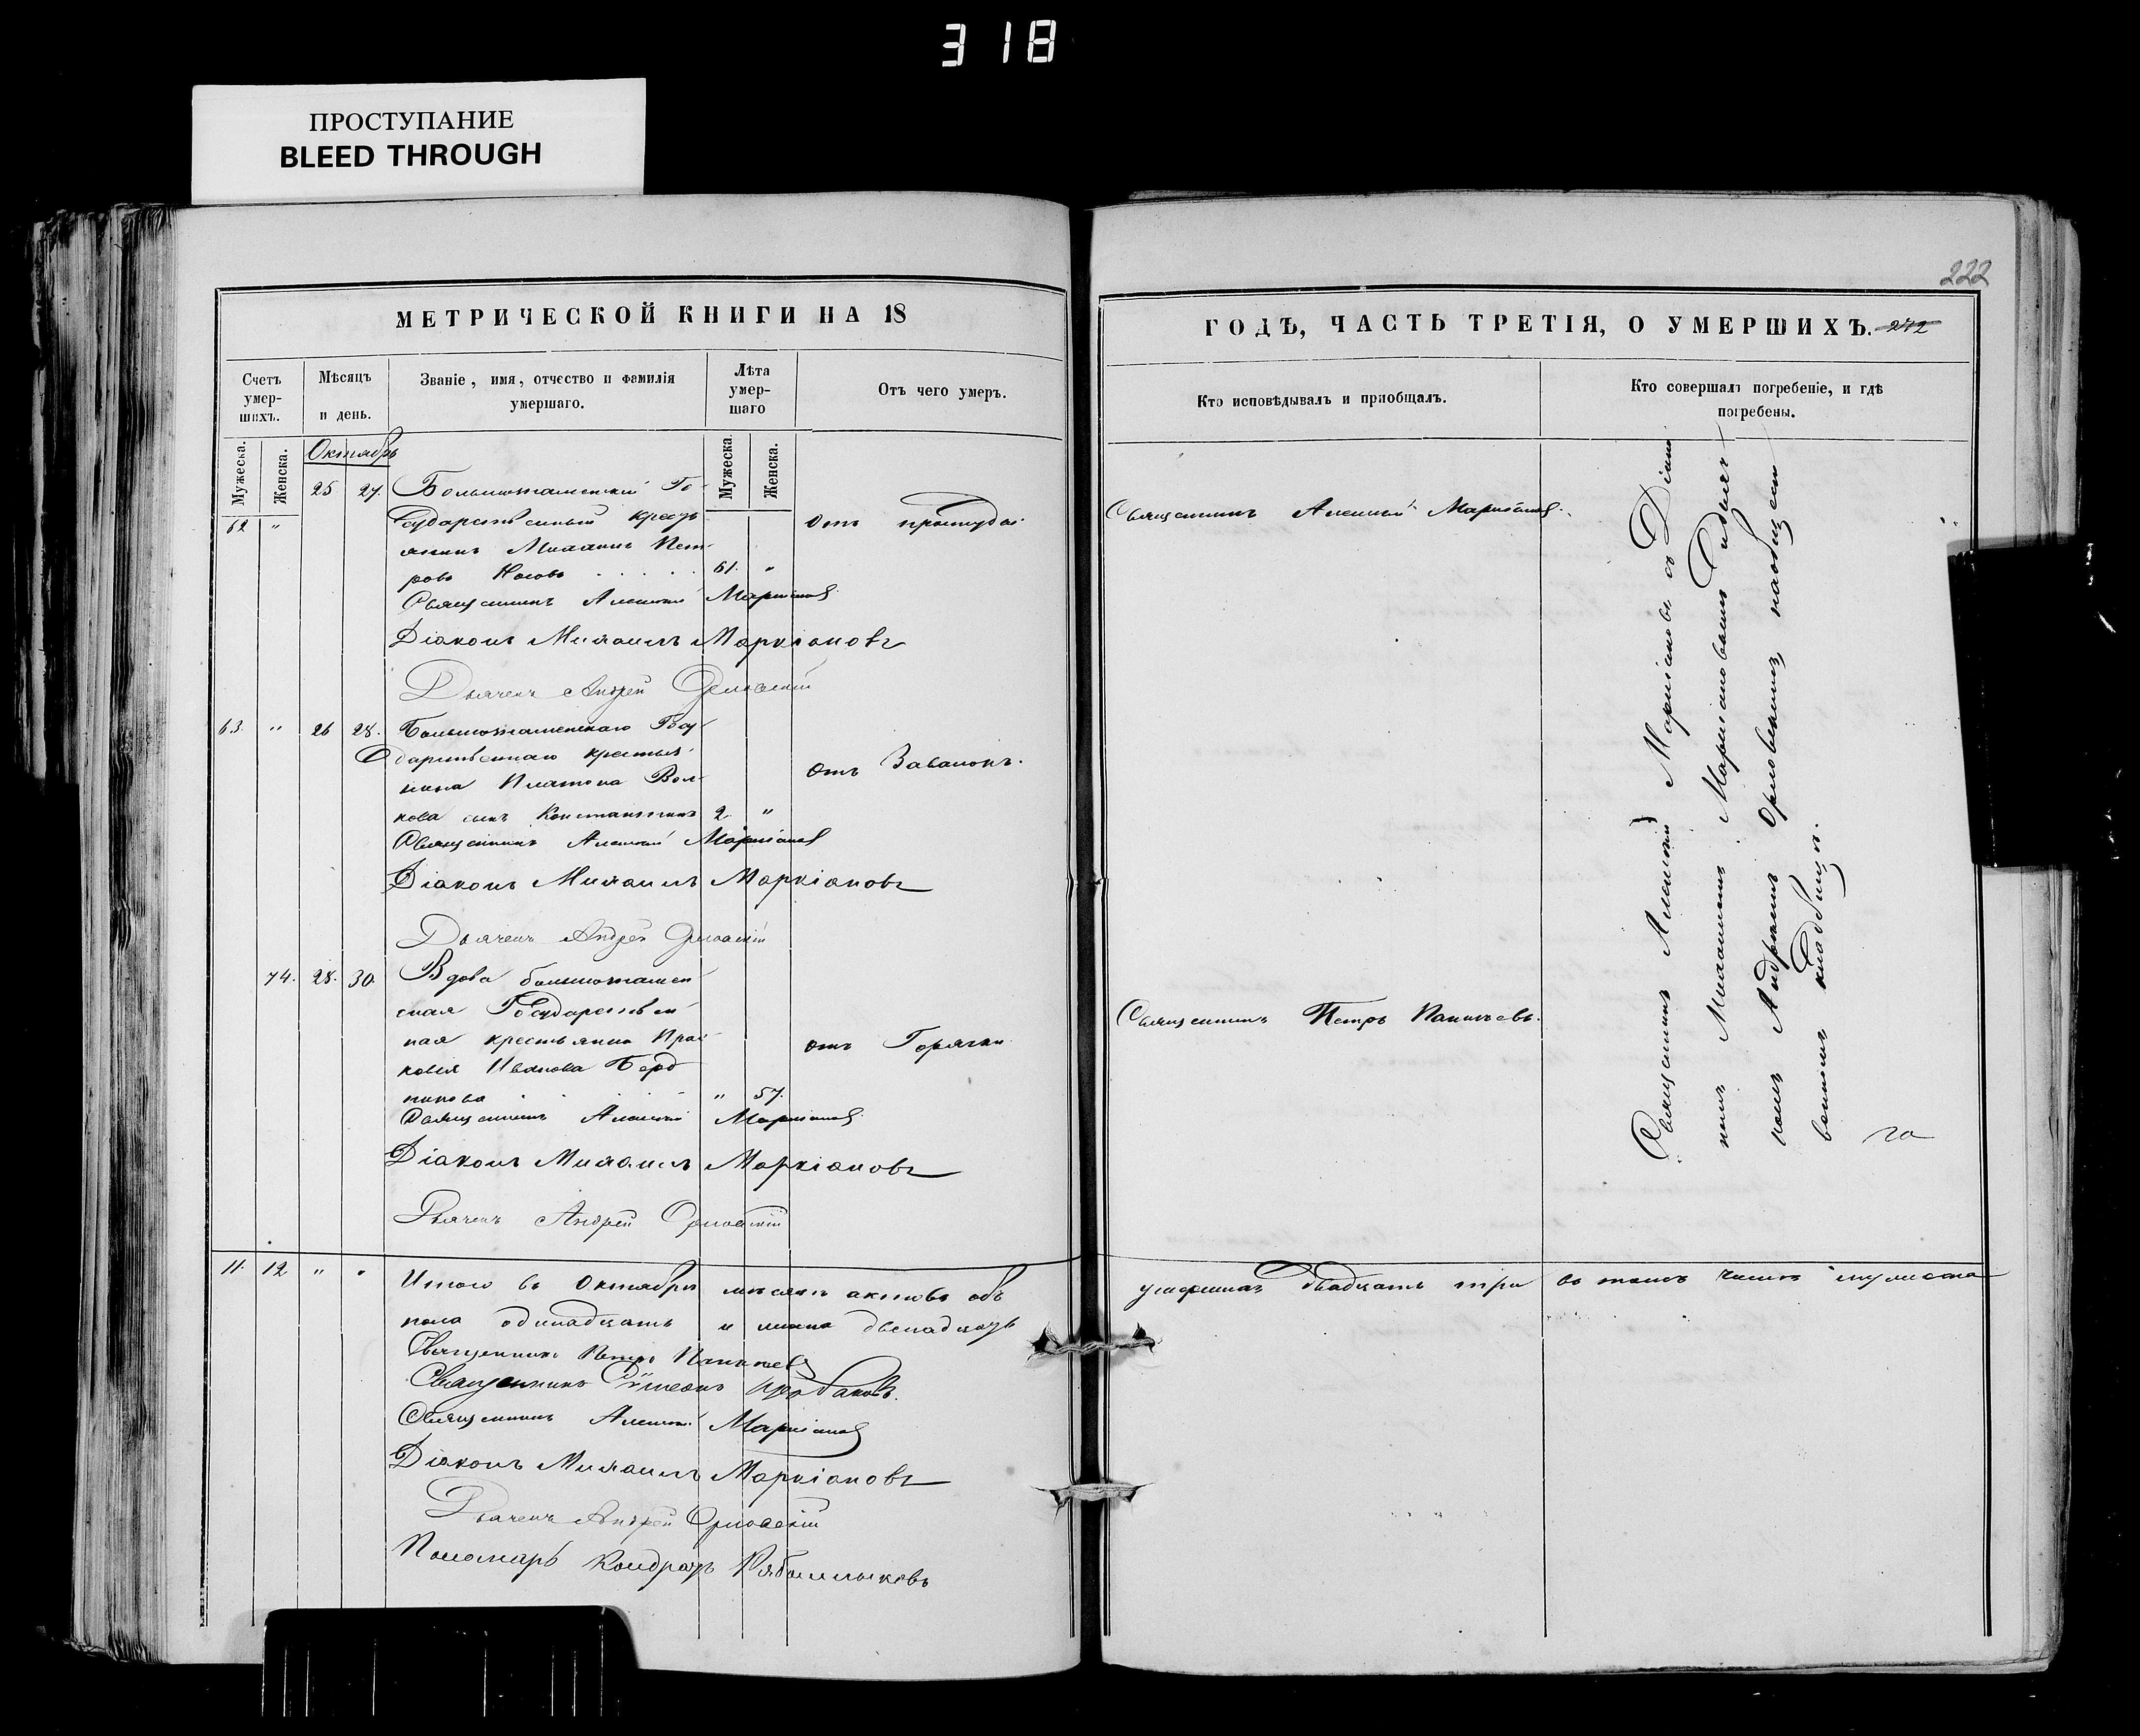 318
ПРОСТУПАНИЕ
BLEED THROUGH
222
МЕТРИЧЕСКОЙ КНИГИ НА 18
Счетъ умер-шихъ.
Мѣсяцъ и день.
Званіе, имя, отчество и фамилія умершаго.
Лѣта умер-шаго
Отъ чего умеръ.
Мужеска.
Женска.
Октябрь
Мужеска.
Женска.
25 27. Большотаменский Го-
62 " сударственный кресть
янинъ Михаилъ Пет-
ровъ Носовъ . . . . . 61. "
Отъ простуды
Священникъ Алексий Маркіановъ
Діаконъ Михаилъ Маркіановъ
Дьячекъ Андрей Орловскій
63. " 26 28. Большотаменскаго Госу
дарственнаго крестья-
нина Платона Вол-
кова сынъ Константинъ 2. "
Отъ Завалокъ.
Священникъ Алексий Маркіановъ
Діаконъ Михаилъ Маркіановъ
Дьячекъ Андрей Орловскій
74. 28. 30. Вдова большотамен
ская Государствен
ная крестьянка Прас
ковья Иванова Берд
никова . . . . " 57.
отъ Горячки
Священникъ Алексий Маркіановъ
Діаконъ Михаилъ Маркіановъ
Дьячекъ Андрей Орловскій
11. 12 " " Итого въ Октябрѣ мѣсяцѣ
пола одинадцать и двенадцать
Священникъ Петръ
Священникъ Сѵмеонъ
Священникъ Алексий Маркіановъ
Діаконъ Михаилъ Маркіановъ
Дьячекъ Андрей Орловскій
Пономарь Кондратъ
ГОДЪ, ЧАСТЬ ТРЕТІЯ, О УМЕРШИХЪ. 272
Кто исповѣдывалъ и пріобщалъ.
Кто совершалъ погребеніе, и гдѣ погребены.
Священникъ Алексий Маркіановъ.
Священникъ Петръ
Священникъ Алексий Маркіановъ съ Діако
номъ Михаиломъ Маркіановымъ и Дьяч
комъ Андреемъ Орловскимъ, на общест
венномъ кладбищѣ.
умершихъ двадцать три въ томъ числѣ